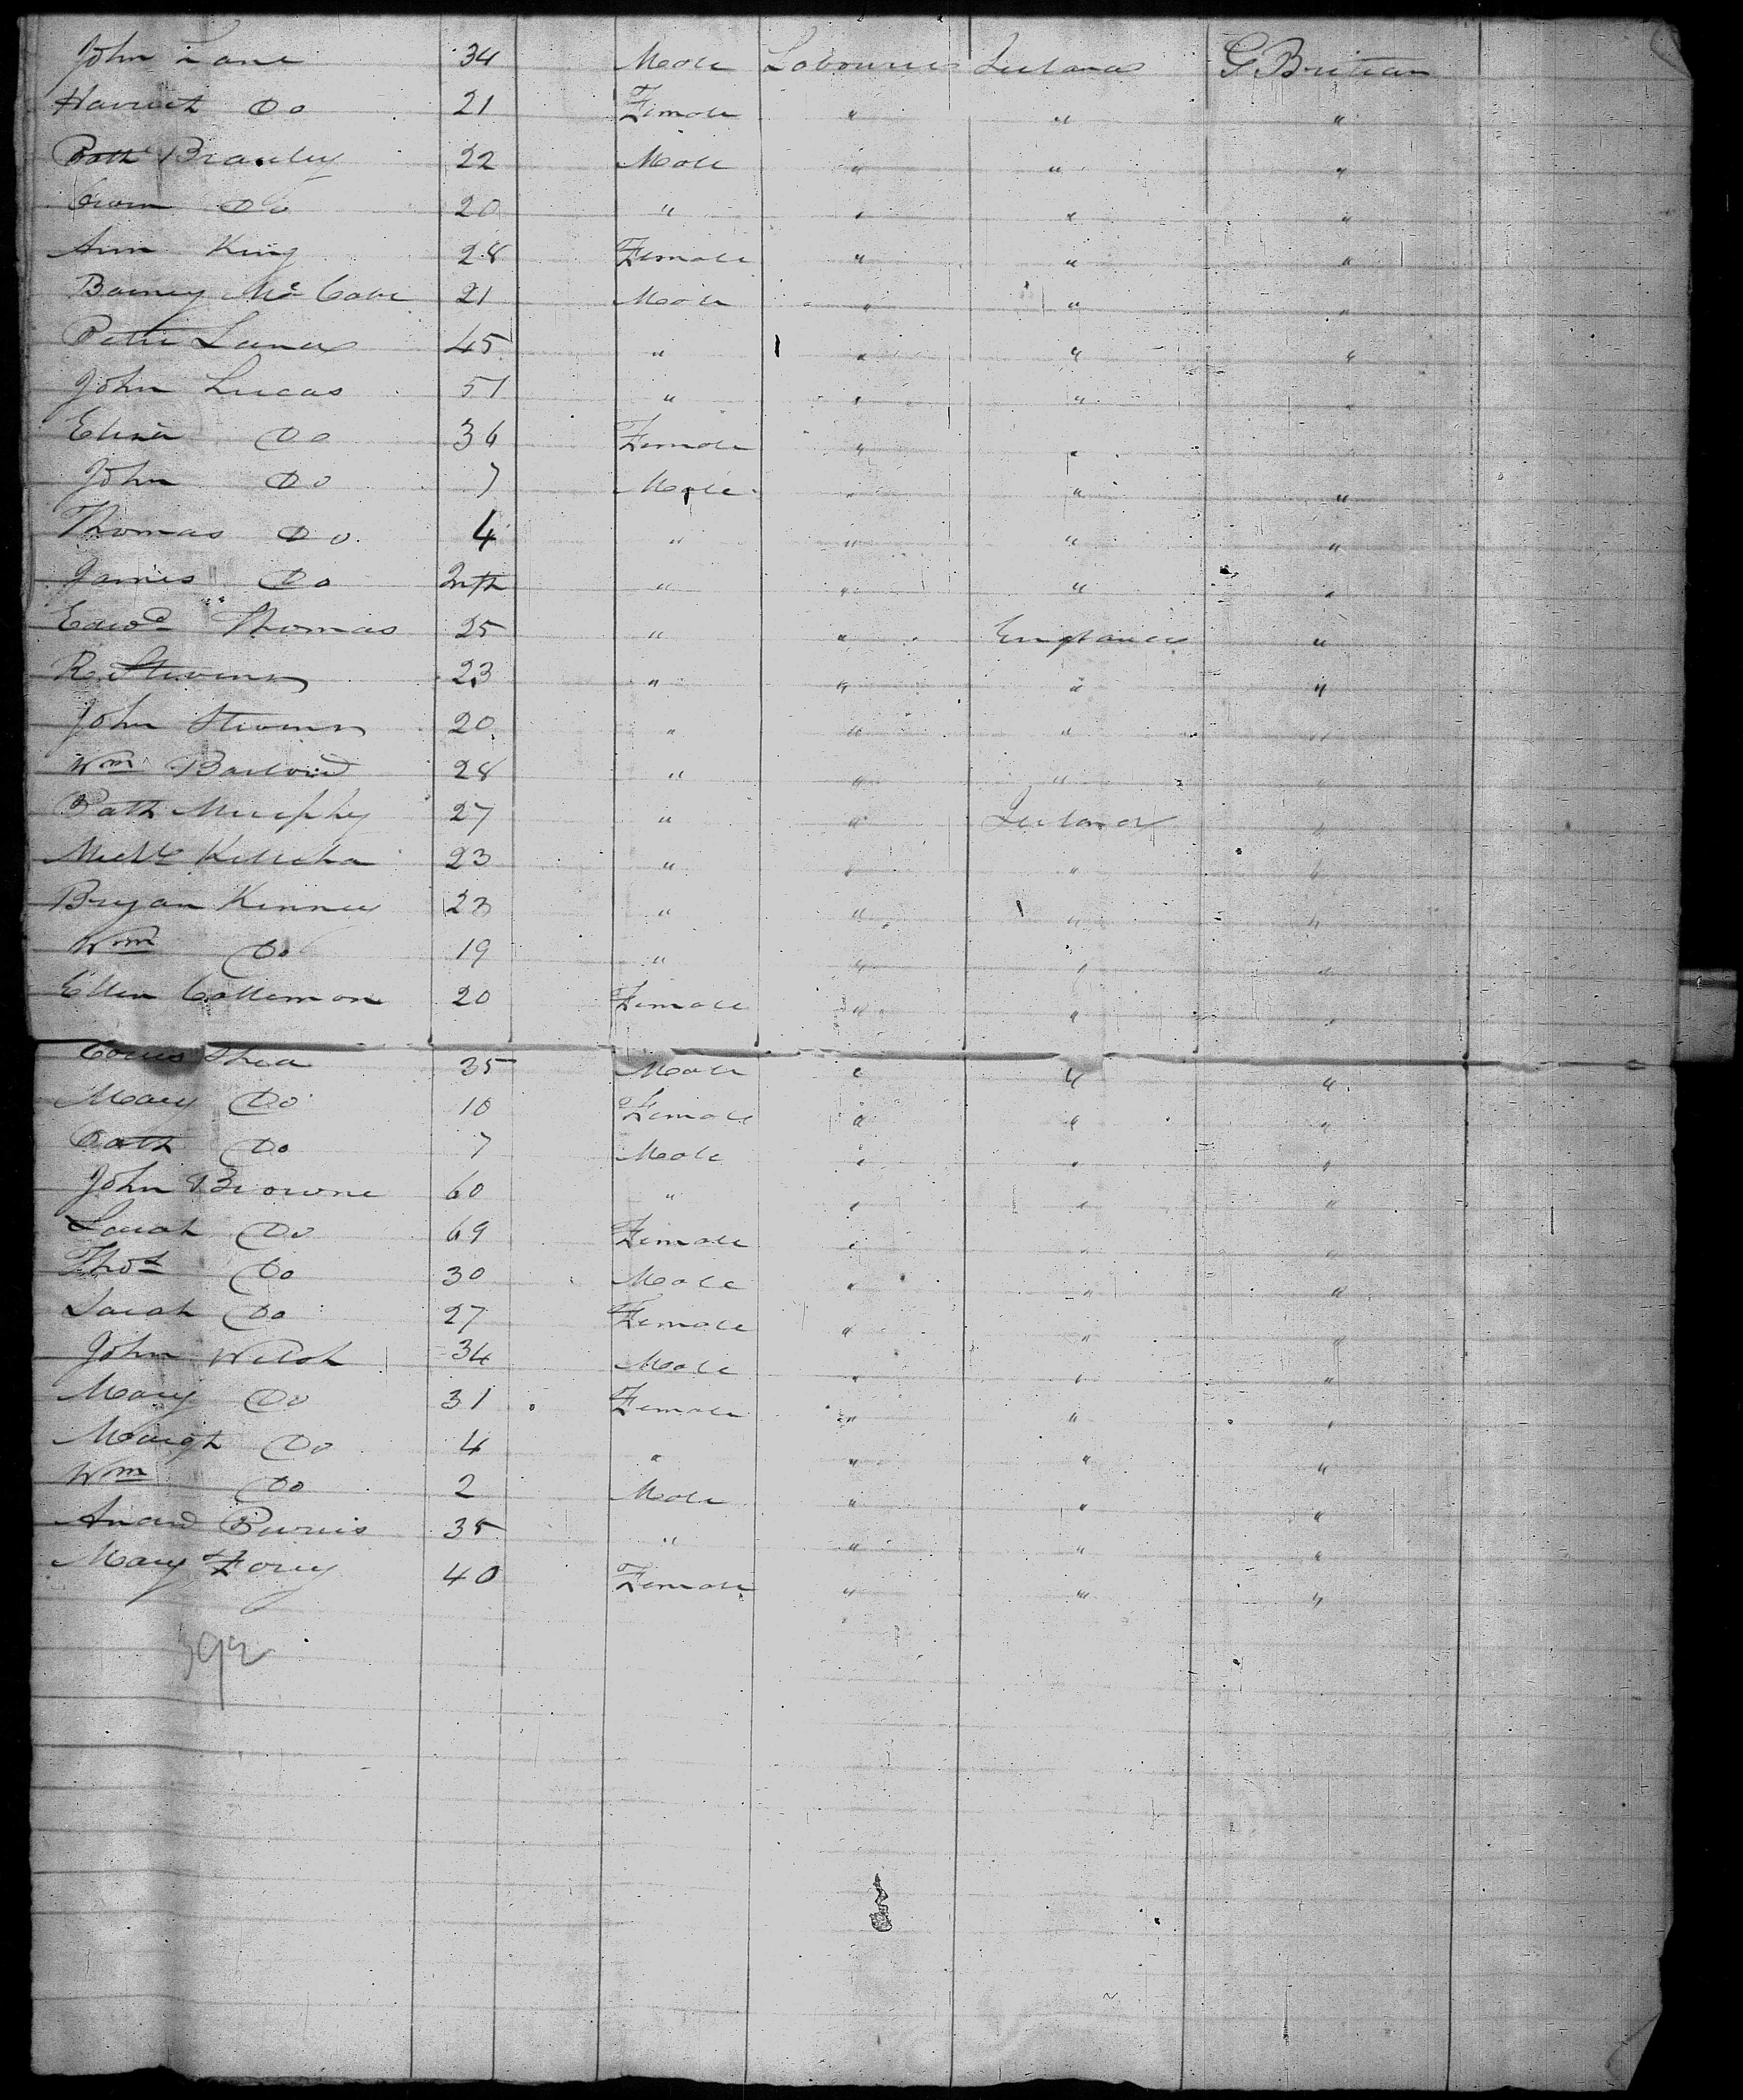 John Lane 34 Male Labourers Ireland G. Britian
Harriet Do 21 Female " " "
Patk Brawley 22 Male " " "
Owen Do 20 " " " "
Ann King 28 Female " " "
Barney Mc Cabe 21 Male " " "
Peter 45 " " " "
John Lucas 51 " " " "
Eliza Do 36 Female " " "
John Do 7 Male " " "
Thomas Do 4 " " " "
James Do " " " "
Edwd Thomas 25 " " England "
R. Stevens 23 " " " "
John Stevens 20 " " " "
Wm 28 " " " "
Patk Murphy 27 " " Ireland "
Michl 23 " " " "
Bryan Kinney 23 " " " "
Wm Do 19 " " " "
Ellen Colleman 20 Female " " "
Shea 35 Male " " "
Mary Do 10 Female " " "
Patk Do 7 Male " " "
John Browne 60 " " " "
Sarah Do 69 Female " " "
Thos Do 30 Male " " "
Sarah Do 27 Female " " "
John Welsh 34 Male " " "
Mary Do 31 Female " " "
Margt Do 4 " " " "
Wm Do 2 Male " " "
35 " " " "
Mary 40 Female " " "
392